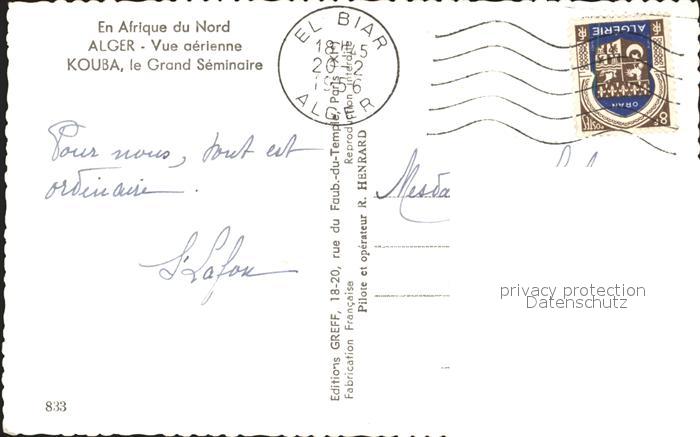 En Afrique du Nord
ALGER - Vue aérienne
KOUBA, le Grand Séminaire
EL BIAR
18H45
20-2
1956
ALGER
ALGÉRIE
ORAN
Pour nous, tout est
ordinaire.
Lafon
Mesda
Editions GREFF, 18-20, rue du Faub.-du-Temple, Paris XIe
Fabrication Française
Reproduction interdite
Pilote et opérateur R. HENRARD
privacy protection
Datenschutz
833